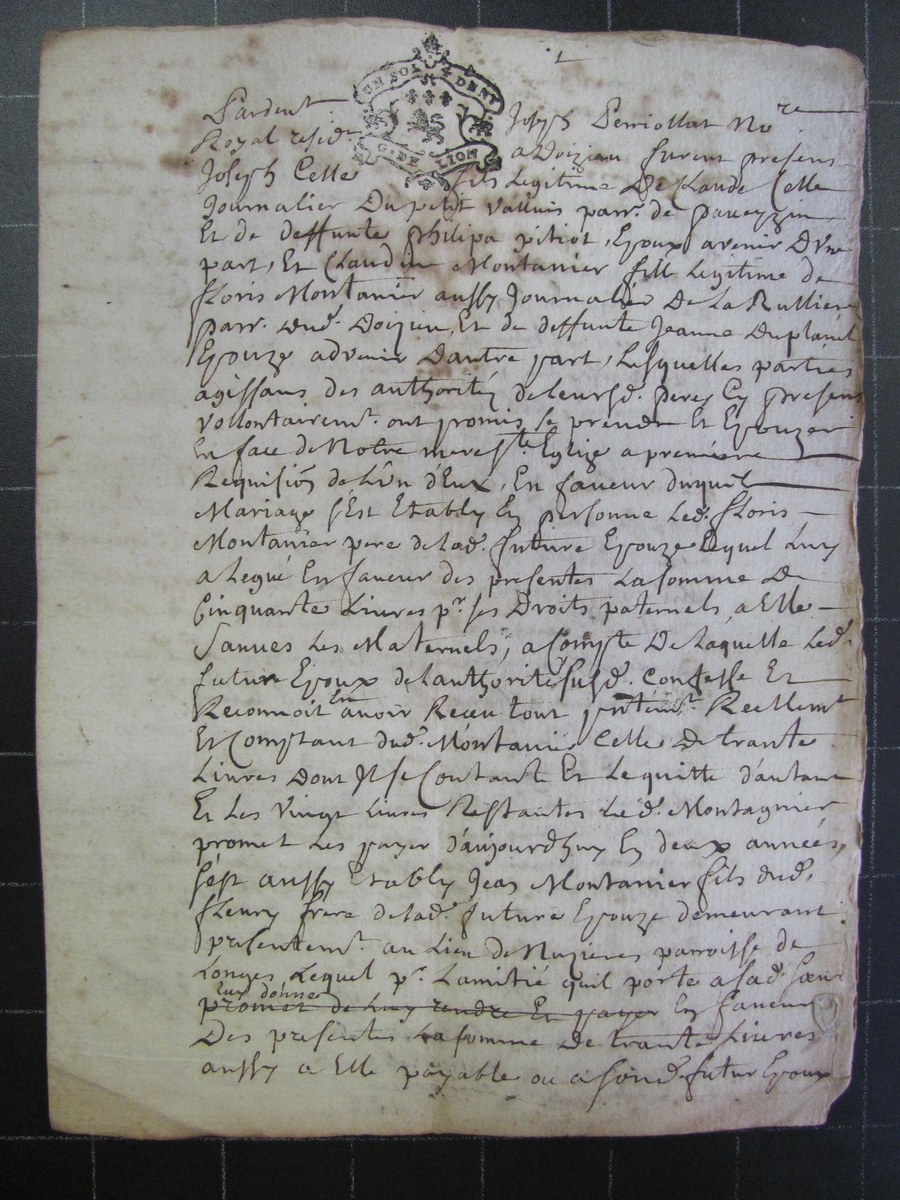 UN SOL 4 DENI
G. DE LION
Pardent Joseph Perriollat No.re
Royal resid.t a Doizieu furent presens
Joseph Celle fils Legitime De Claude Celle
Journalier Du petit valluis parr. de paveyzin
Et de deffunte philipa pitiot, Epoux avenir D'vne
part, Et Claudine Montanier fille Legitime de
floris Montanier aussy Journalier De La Rulliere
parr. dud. Doizieu, Et de deffunte Jeanne Duplanil
Epouze advenir Dautre part, Lesquelles parties
agissans des authoritéz de leursd. peres Cy presens
vollontairem.t ont promis se prendre Et Epouzer
En face de Notre mere s.te Eglize a premiere
Requisiõn de L'vn d'Eux, En faveur duquel
Mariage s'Est Etably En personne Led. floris
Montanier pere de lad. future Epouze Lequel Luy
a Legué En faveur des presentes La somme De
Cinquante Livres p.r ses Droits paternels, a Elle
Sauves Les Maternels, a Compte De Laquelle Led.
futur Epoux de Lauthorité susd. Confesse Et
Reconnoit En avoir Receu tout Reellem.t
Et Comptant dud. Montanier Celle De trante
Livres Dont Il se Contant Et Le quitte d'autant
Et Les vingt Livres Restantes Led. Montagnier
promet Les payer d'aujourdhuy En deux années,
s'est aussy Etably Jean Montanier fils dud.
fleury frere de lad. future Epouze demeurant
presentem.t au Lieu de Nuzieres parroisse de
Longes Lequel p.r Lamitié quil porte a sad. sœur
luy donne
promet de Luy rendre Et payer En faveur
Des presentes La somme De trante Livres
aussy a Elle payable ou a sond. futur Epoux